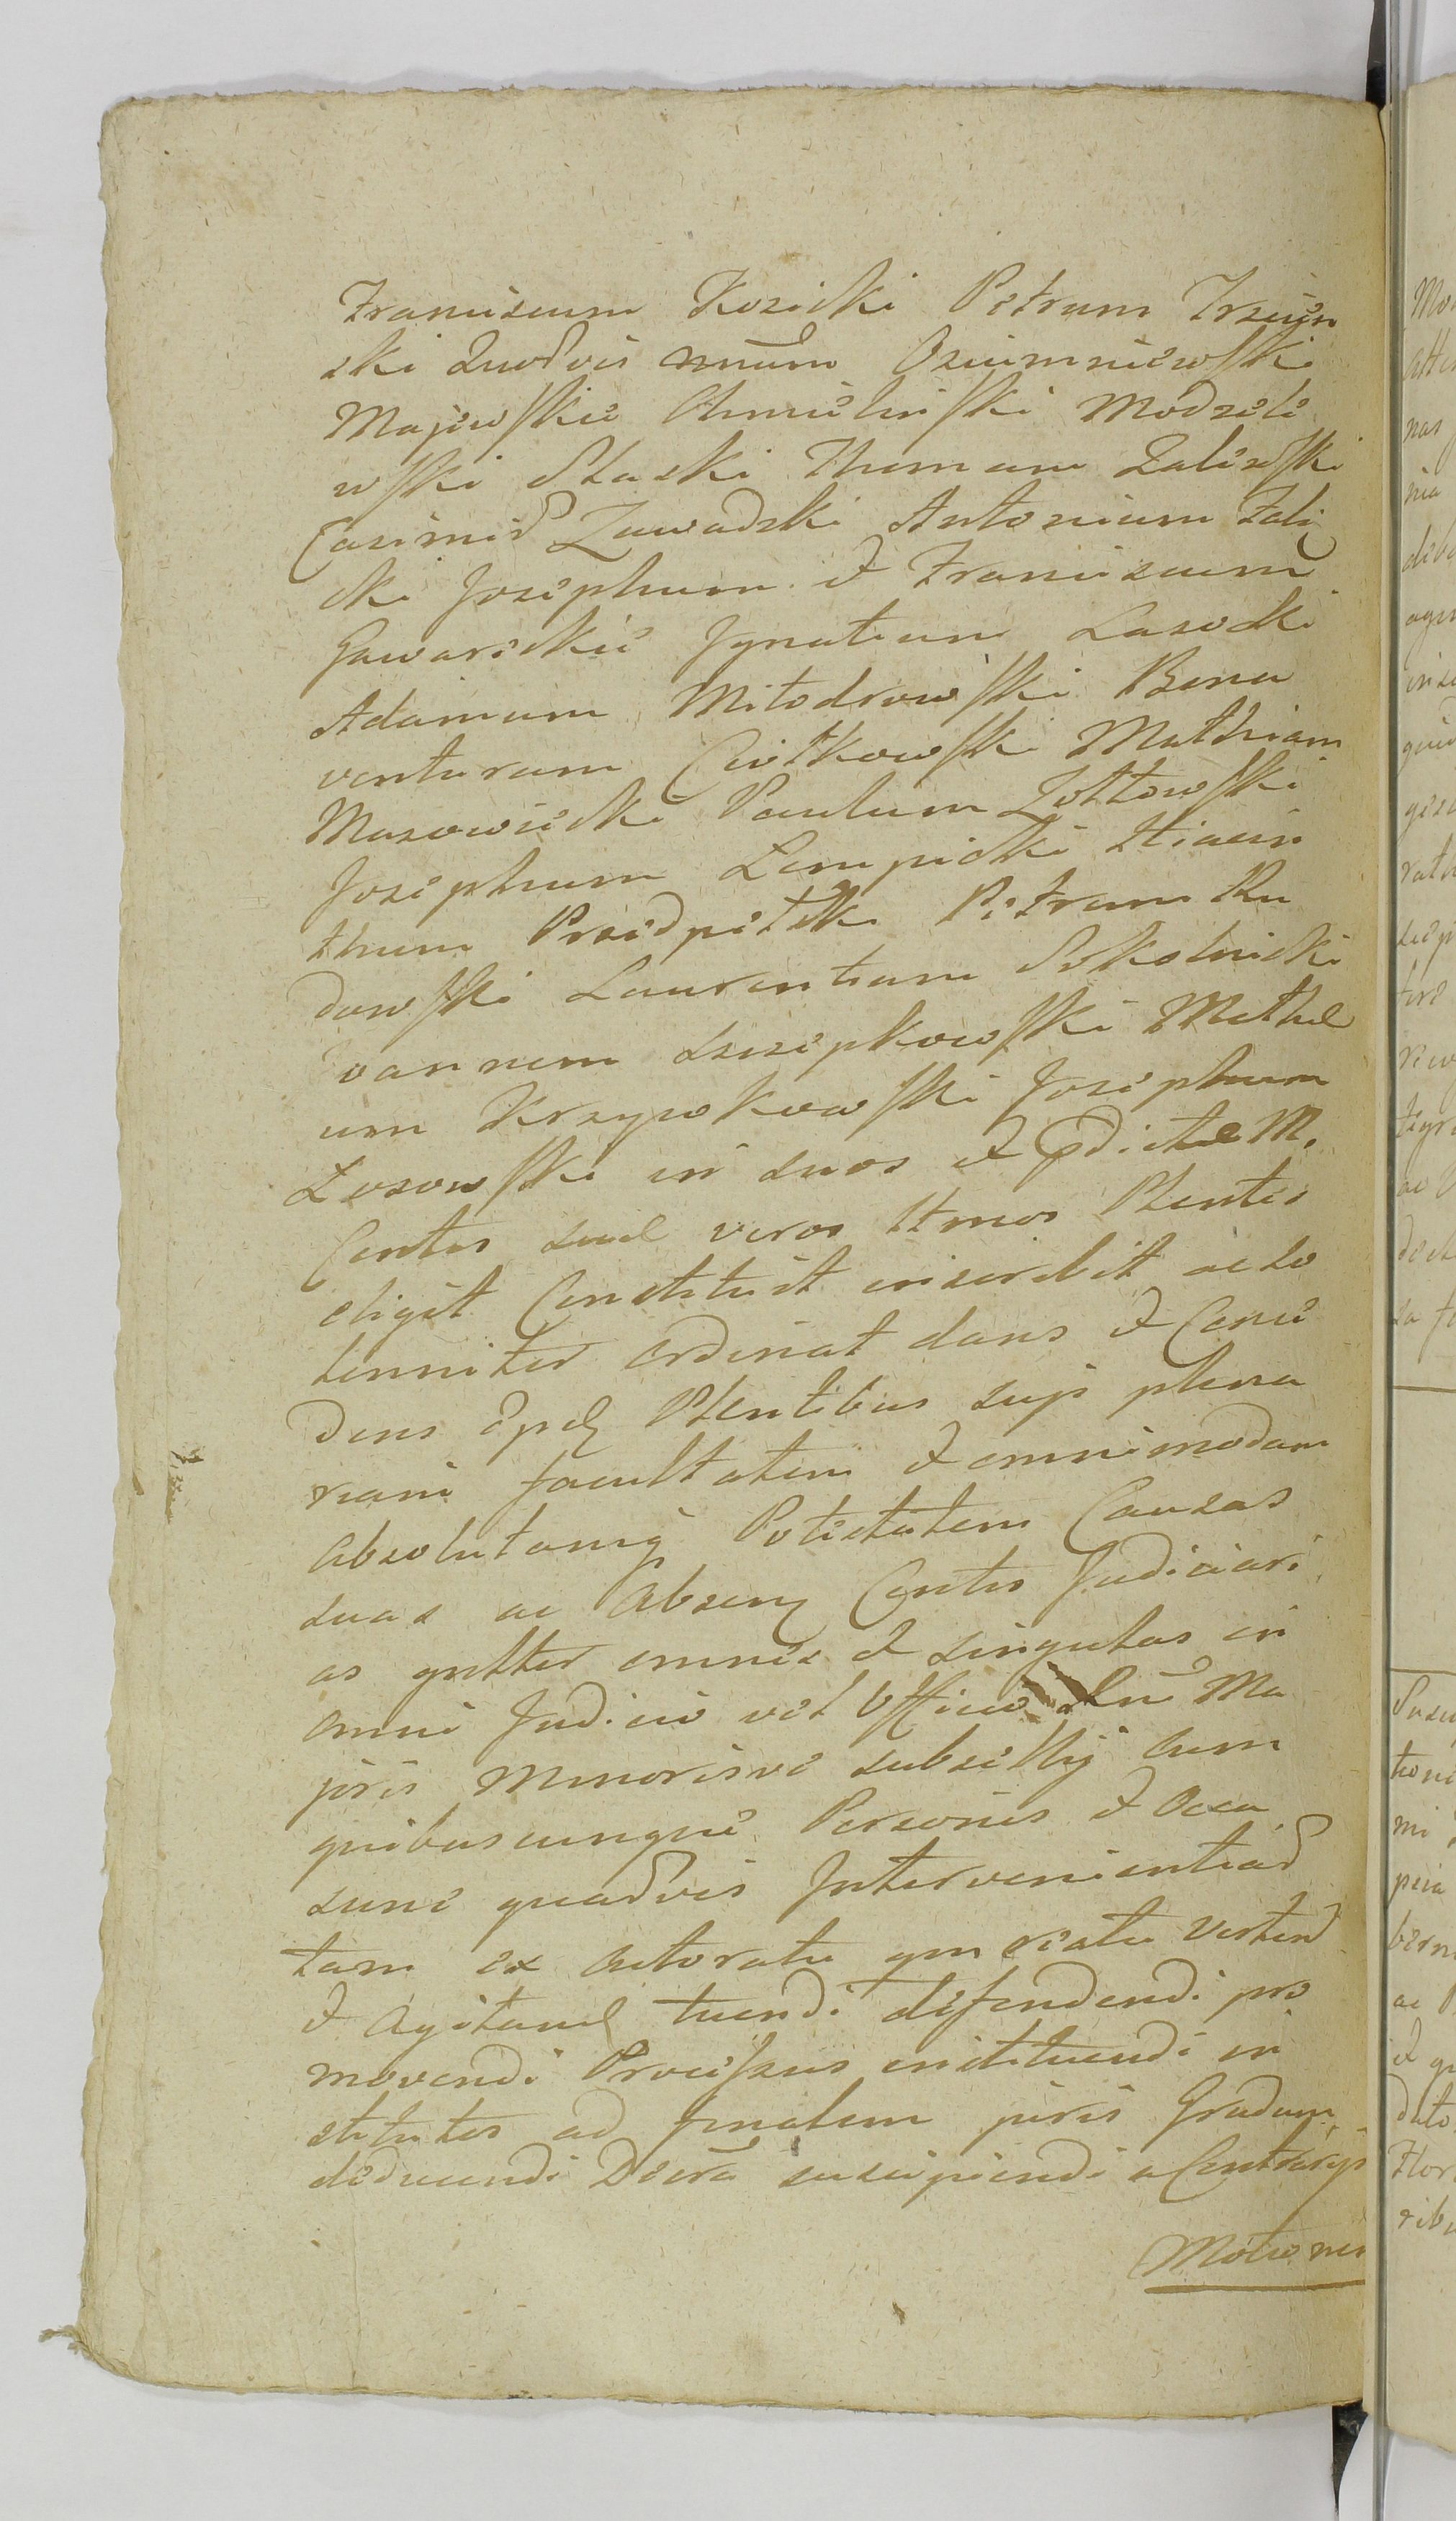 Franciscum Kosicki Petrum Trzciń
ski Ludovicum Osiemniewski
Majewskie Chmieliński Modzele
wski Staski Thomam Zalewski
Casimir Zawadzki Antonium Zali
cki Josephum et Franciscum
Gawareckie Ignatium Lasocki
Adamum Mitodrowski Bona
venturam Ciotkowski Mathiam
Mazowiecki Paulum Żottowski
Josephum Lempicki Hiacin
thum Przedpełski Petrum Ru
dowski Laurentium Sokolnicki
oannem Szczepkowski Matheu
um Krzywkowski Josephum
Losowski in suos et pdictae M.
Contis suae veros Ltmos Plentes
eligit Constituit inscribit ac so
lenniter ordinat dans et Conce
dens Plentibus suis plena
riam facultatem et omnimodam
absolutamq Potestatem Causas
suas ac Absen Contis Judiciari
as gnlter omnes et singulas in
omni Judicio vel Officio Ma
joris Minorisve subsellij cum
quibuscunque Personis et Occa
sune quadvis Intervenientiad
tam ex Actoratu qm reatu verten
et Agitand tuendi defendendi pro
movendi Processus instituendi in
stitutos ad finalem juris Gradum
deducendi Decra suscipiendi a Contrarijs
Motione